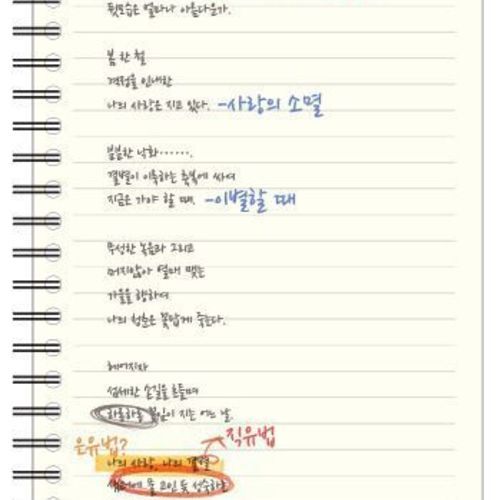 뒷모습은 얼마나 아름다운가.
봄 한 철
격정을 인내한
나의 사랑은 지고 있다. -사랑의 소멸
분분한 낙화…….
결별이 이룩하는 축복에 싸여
지금은 가야 할 때. -이별할 때
무성한 녹음과 그리고
머지않아 열매 맺는
가을을 향하여
나의 청춘은 꽃답게 죽는다.
헤어지자
섬세한 손길을 흔들며
하롱하롱 꽃잎이 지는 어느 날
은유법? 직유법
나의 사랑, 나의 결별
샘터에 물 고인 듯 성숙하는